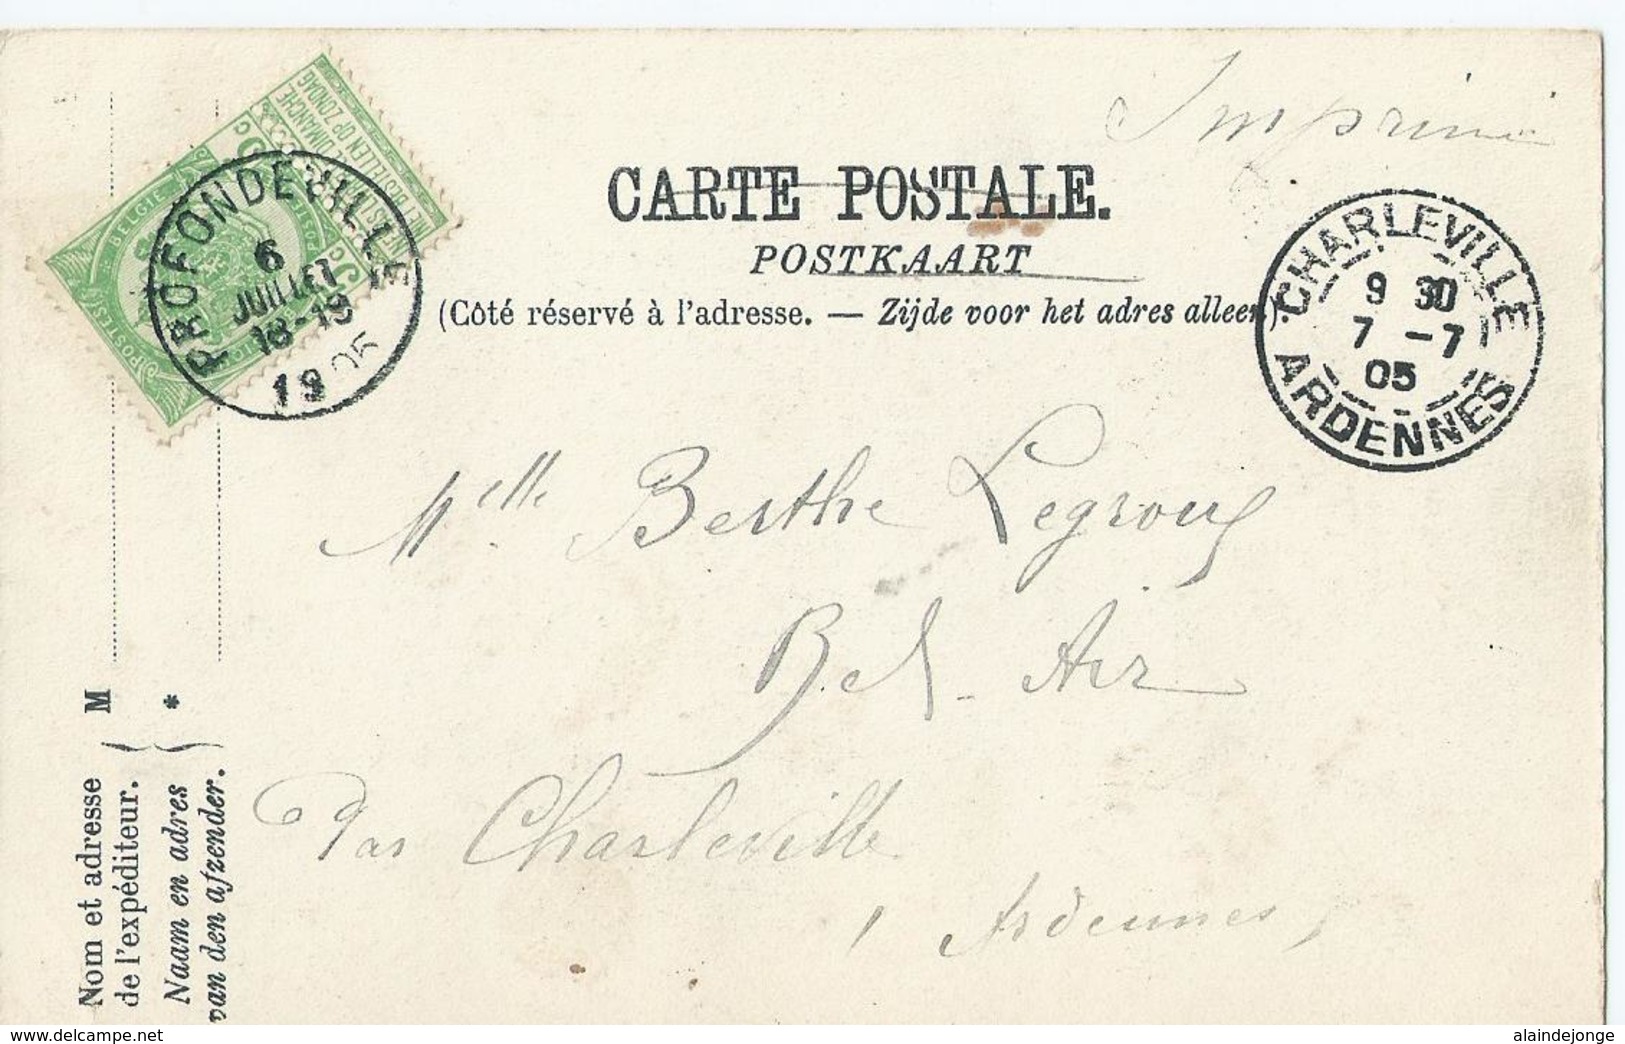 Imprimé
CARTE POSTALE.
POSTKAART
(Côté réservé à l'adresse. — Zijde voor het adres alleen).
PROFONDEVILLE
6
JUILLET
18-19
1905
BELGIE
POSTES
NIET BESTELLEN OP ZONDAG
DIMANCHE
5c
5c
CHARLEVILLE
9 30
7 -7
05
ARDENNES
Melle Berthe Legroux
Bel-Air
Par Charleville
Ardennes,
M
*
Nom et adresse
de l'expéditeur.
Naam en adres
van den afzender.
www.delcampe.net
alaindejonge